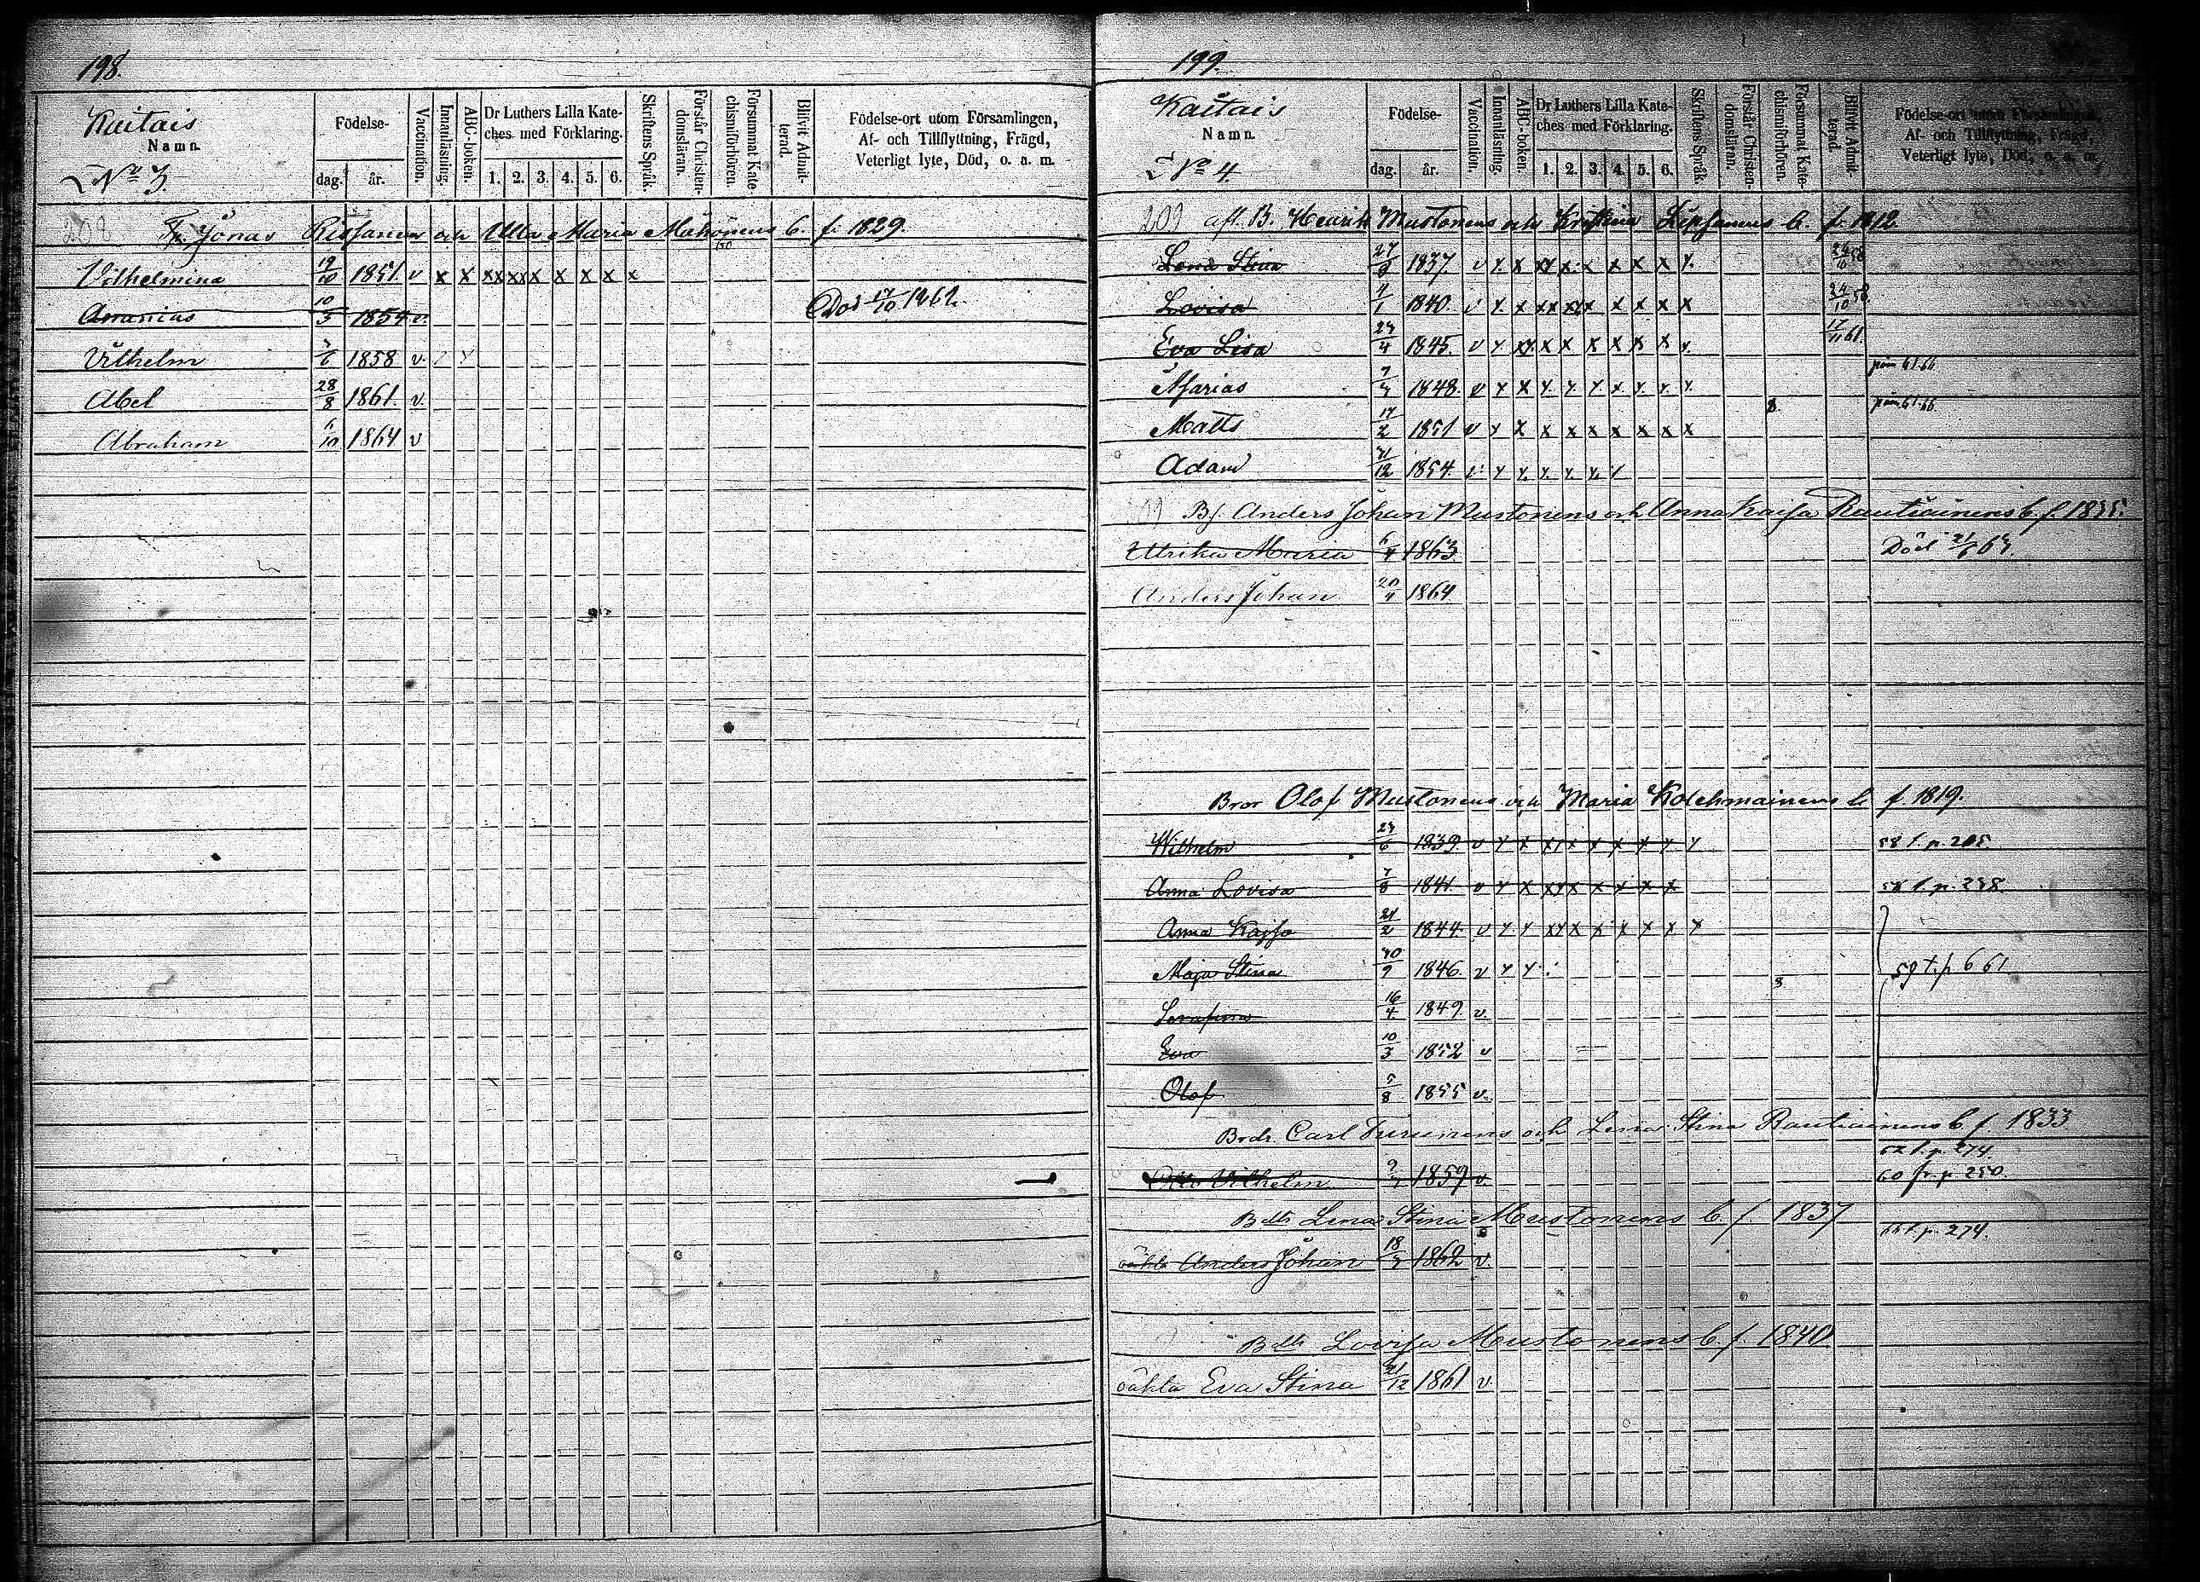 198.
Kaitais
Namn.
No 3
Födelse-
dag. år.
Vaccination.
Innanläsning.
ABC-boken.
Dr Luthers Lilla Kate-
ches med Förklaring.
1. 2. 3. 4. 5. 6.
Skriftens Språk.
Förstår Christen-
domsläran.
Försummat Kate-
chismiförhören.
Blivit Admit-
terad.
Födelse-ort utom Församlingen,
Af- och Tillflyttning, Frägd,
Veterligt lyte, Död, o. a. m.
208 Jonas Rissanen och Ulla Maria b. f. 1829.
Vilhelmina 19/10 1851. v x x xx xx x x x x x
Ananias 10/3 1854 v. Död 17/10 1862.
Vilhelm 1858 v.
Abel 28/8 1861. v.
Abraham 6/10 1864 v
199.
Kaitais
Namn.
No 4.
Födelse-
dag. år.
Vaccination.
Innanläsning.
ABC-boken.
Dr Luthers Lilla Kate-
ches med Förklaring.
1. 2. 3. 4. 5. 6.
Skriftens Språk.
Förstår Christen-
domsläran.
Försummat Kate-
chismiförhören.
Blivit Admit-
terad.
Födelse-ort utom Församlingen,
Af- och Tillflyttning, Frägd,
Veterligt lyte, Död, o. a. m.
209 afl. B. Henrik Mustonens och Kristina b. f. 1812.
Lena Stina 1837 v x x xx x x x x x x
Lovisa 1840. v x x xx xx x x x x 24/10 58
Eva Lisa 23/4 1845. v x xx x x x x x x x 17/11 61.
Marias 1848. v x x x x x x x x x
Matts 17/2 1851 v x x x x x x x x x
Adam 21/12 1854. v x x x x x x
209 Bf. Anders Johan Mustonens och Anna Kaisa Rautiainens b. f. 1835.
Ulrika Maria 6/4 1863. Död
Anders Johan 20/4 1864
Bror Olof Mustonens och Maria Kolehmainens b. f. 1819.
Wilhelm 23/6 1839 v x x xx x x x x x x 58 t. p. 205
Anna Lovisa 7/8 1841. v x x xx x x x x x t. p. 238.
Anna Kajsa 24/2 1844 v x x xx x x x x x x
Maja Stina 30/9 1846. v x x 3 59 t. p 661
Serafina 16/4 1849 v.
Eva 10/3 1852 v
Olof 5/8 1855 v.
Brdr. Carl Turunens och Lena Stina Rautiainens b f. 1833
t. p. 274.
Otto Vilhelm 1859 v 60 fr. p. 250.
Bdtr Lena Stina Mustonens b. f. 1837
t. p. 274.
oäkta Anders Johan 18/3 1862 v.
Bdtr Lovisa Mustonens b. f. 1840
oäkta Eva Stina 21/12 1861 v